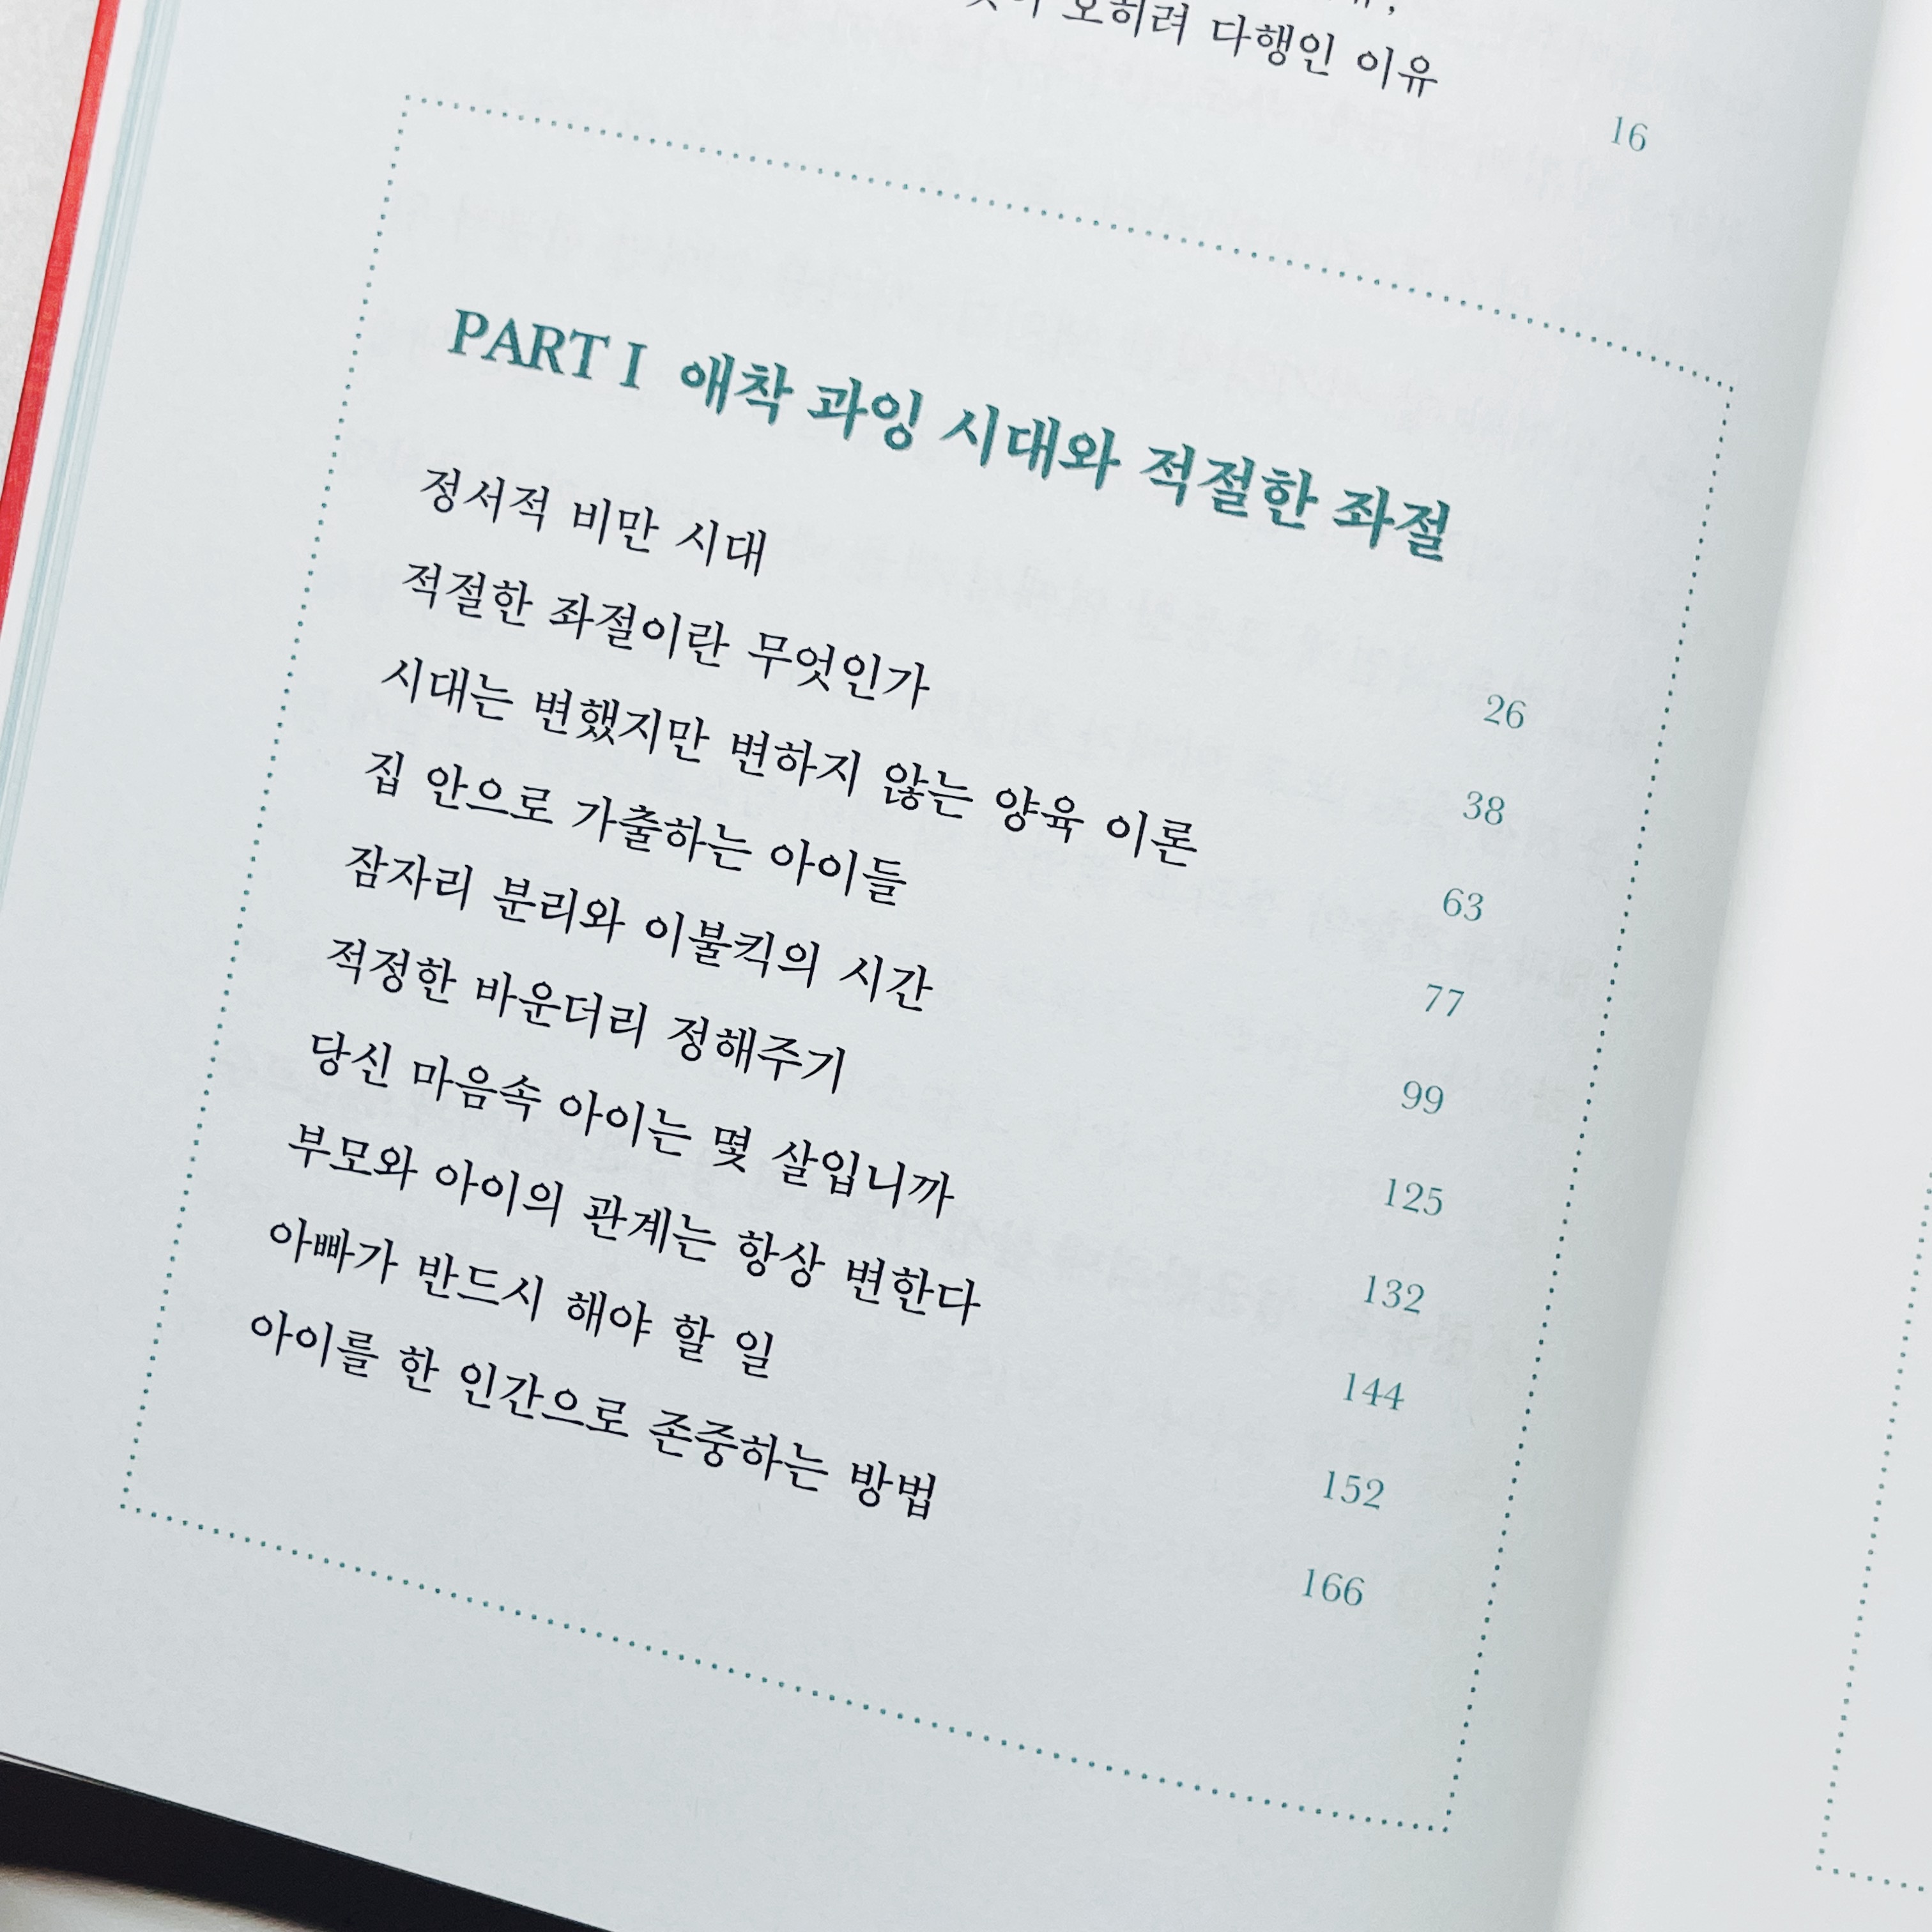 오히려 다행인 이유 16
PART I 애착 과잉 시대와 적절한 좌절
정서적 비만 시대 26
적절한 좌절이란 무엇인가 38
시대는 변했지만 변하지 않는 양육 이론 63
집 안으로 가출하는 아이들 77
잠자리 분리와 이불킥의 시간 99
적정한 바운더리 정해주기 125
당신 마음속 아이는 몇 살입니까 132
부모와 아이의 관계는 항상 변한다 144
아빠가 반드시 해야 할 일 152
아이를 한 인간으로 존중하는 방법 166